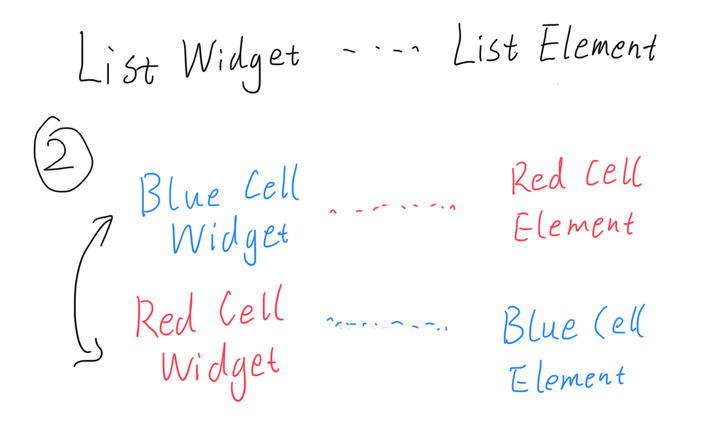 List Widget ---- List Element
2
Blue Cell
Widget
Red Cell
Element
Red Cell
Widget
Blue Cell
Element